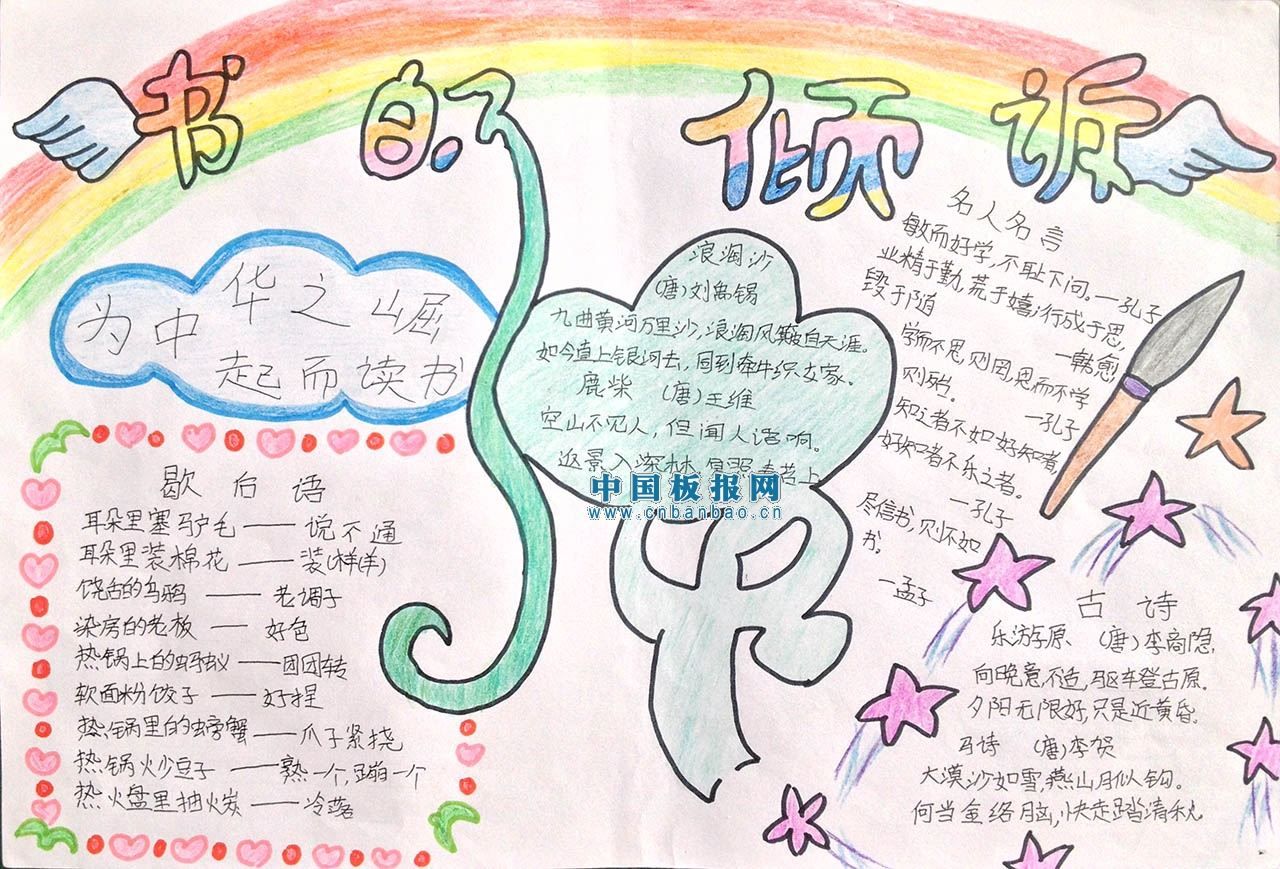 书的倾诉
为中华之崛
起而读书
歇后语
耳朵里塞驴毛——说不通
耳朵里装棉花——装(样)(羊)
饶舌的乌鸦——老调子
染房的老板——好色
热锅上的蚂蚁——团团转
软面粉饺子——好捏
热锅里的螃蟹——爪子紧挠
热锅炒豆子——熟一个,蹦一个
热火盘里抽火炭——冷落
浪淘沙
(唐)刘禹锡
九曲黄河万里沙,浪淘风簸自天涯。
如今直上银河去,同到牵牛织女家。
鹿柴 (唐)王维
空山不见人,但闻人语响。
返景入深林,复照青苔上
中国板报网
www.cnbanbao.cn
名人名言
敏而好学,不耻下问。—孔子
业精于勤,荒于嬉;行成于思,
毁于随 —韩愈
学而不思,则罔,思而不学
则殆。 —孔子
知之者不如好知者,
好知者不乐之者。
—孔子
尽信书,则不如
书。
—孟子
古诗
乐游原 (唐)李商隐
向晚意不适,驱车登古原。
夕阳无限好,只是近黄昏。
马诗 (唐)李贺
大漠沙如雪,燕山月似钩。
何当金络脑,快走踏清秋